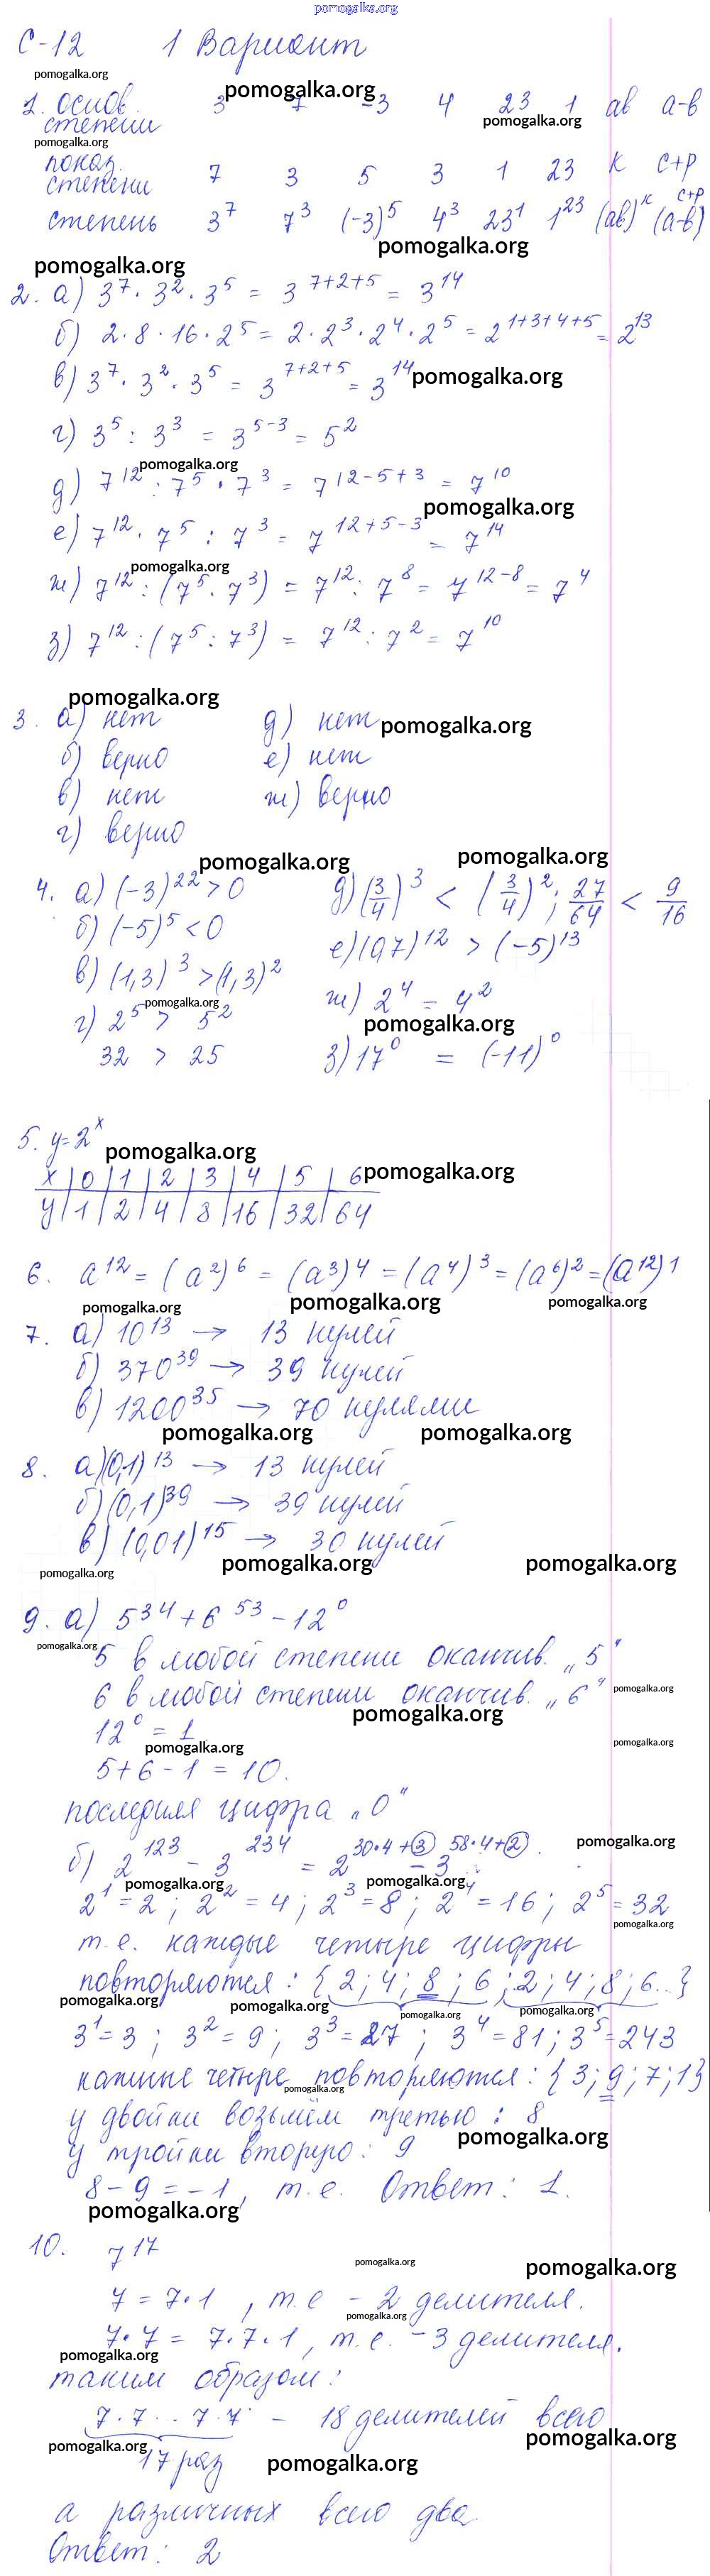 pomogalka.org
С-12 1 Вариант
pomogalka.org pomogalka.org
1. основ. 3 7 -3 4 23 1 ab a-b
степени pomogalka.org
pomogalka.org
показ. 7 3 5 3 1 23 k c+p
степени
степень 3^7 7^3 (-3)^5 4^3 23^1 1^23 (ab)^k (a-b)^c+p
pomogalka.org
pomogalka.org
2. а) 3^7 · 3^2 · 3^5 = 3^7+2+5 = 3^14
б) 2 · 8 · 16 · 2^5 = 2 · 2^3 · 2^4 · 2^5 = 2^1+3+4+5 = 2^13
в) 3^7 · 3^2 · 3^5 = 3^7+2+5 = 3^14 pomogalka.org
г) 3^5 : 3^3 = 3^5-3 = 5^2
pomogalka.org
д) 7^12 : 7^5 · 7^3 = 7^12-5+3 = 7^10
pomogalka.org
е) 7^12 · 7^5 : 7^3 = 7^12+5-3 = 7^14
pomogalka.org
ж) 7^12 : (7^5 · 7^3) = 7^12 : 7^8 = 7^12-8 = 7^4
з) 7^12 : (7^5 : 7^3) = 7^12 : 7^2 = 7^10
pomogalka.org
3. а) нет д) нет pomogalka.org
б) верно е) нет
в) нет ж) верно
г) верно
pomogalka.org pomogalka.org
4. а) (-3)^22 > 0 д) (3/4)^3 < (3/4)^2; 27/64 < 9/16
б) (-5)^5 < 0 е) (0,7)^12 > (-5)^13
в) (1,3)^3 > (1,3)^2 ж) 2^4 = 4^2
pomogalka.org
г) 2^5 > 5^2 pomogalka.org
32 > 25 з) 17^0 = (-11)^0
5. y = 2^x
pomogalka.org pomogalka.org
x | 0 | 1 | 2 | 3 | 4 | 5 | 6
y | 1 | 2 | 4 | 8 | 16 | 32 | 64
6. a^12 = (a^2)^6 = (a^3)^4 = (a^4)^3 = (a^6)^2 = (a^12)^1
pomogalka.org pomogalka.org pomogalka.org
7. а) 10^13 → 13 нулей
б) 370^39 → 39 нулей
в) 1200^35 → 70 нулями
pomogalka.org pomogalka.org
8. а) (0,1)^13 → 13 нулей
б) (0,1)^39 → 39 нулей
в) (0,01)^15 → 30 нулей
pomogalka.org pomogalka.org pomogalka.org
9. а) 5^34 + 6^53 - 12^0
pomogalka.org
5 в любой степени оканчив. „5"
6 в любой степени оканчив. „6" pomogalka.org
pomogalka.org
12^0 = 1
pomogalka.org pomogalka.org
5 + 6 - 1 = 10.
последняя цифра „0"
б) 2^123 - 3^234 = 2^30·4+3 - 3^58·4+2. pomogalka.org
pomogalka.org pomogalka.org
2^1 = 2; 2^2 = 4; 2^3 = 8; 2^4 = 16; 2^5 = 32
pomogalka.org
т.е. каждые четыре цифры
повторяются: {2; 4; 8; 6; 2; 4; 8; 6...}
pomogalka.org pomogalka.org pomogalka.org pomogalka.org
3^1 = 3; 3^2 = 9; 3^3 = 27; 3^4 = 81; 3^5 = 243
каждые четыре повторяются: {3; 9; 7; 1}
pomogalka.org
у двойки возьмём третью: 8
у тройки вторую: 9 pomogalka.org
8 - 9 = -1, т.е. Ответ: 1.
pomogalka.org
10. 7^17
pomogalka.org pomogalka.org
7 = 7·1, т.е - 2 делителя.
pomogalka.org
7·7 = 7·7·1, т.е. - 3 делителя.
pomogalka.org
таким образом:
7·7...7·7 - 18 делителей всего
pomogalka.org pomogalka.org
17 раз pomogalka.org
а различных всего два.
Ответ: 2